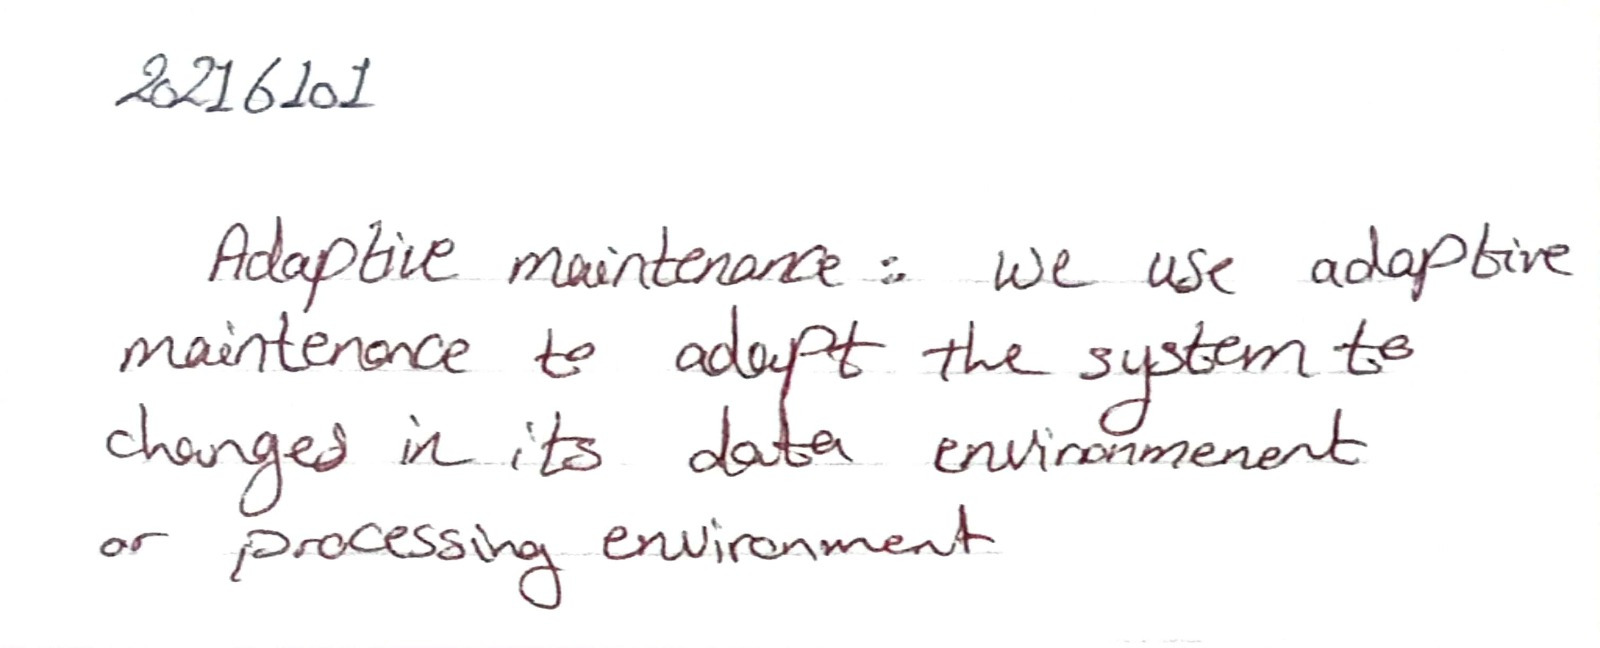 20216101
Adaptive maintenance : we use adaptive
maintenance to adapt the system to
changes in its data environmenent
or processing environment